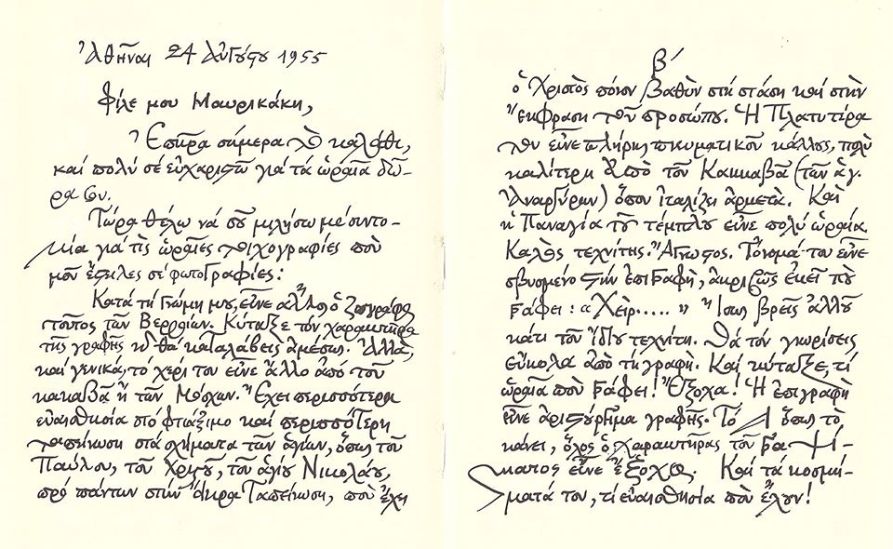 Ἀθῆναι 24 Αὐγούστου 1955
Φίλε μου Μαυρικάκη,
Ἐπῆρα σήμερα τὸ καλάθι,
καὶ πολύ σέ εὐχαριστῶ γιά τά ὡραῖα δῶ-
ρα σου.
Τώρα θέλω νά σοῦ μιλήσω με συντο-
μία γιά τὶς ὡραῖες τοιχογραφίες ποὺ
μοῦ ἔστειλες σέ φωτογραφίες:
Κατά τή γνώμη μου, εἶνε ἄλλος ὁ ζωγράφος
τοῦτος τῶν Βερροίων. Κύταξε τόν χαρακτήρα
τῆς γραφῆς κ' θά καταλάβεις ἀμέσως. Ἀλλὰ,
καί γενικά, τό χέρι του εἶνε ἄλλο ἀπό τοῦ
κακαβᾶ ἤ τῶν Μόσχων. Ἔχει περισσότερη
εὐαισθησία στό φτιάξιμο καί περισσότερη
ταπείνωση στά σχήματα τῶν ἁγίων, ὅπως τοῦ
Παύλου, τοῦ Χριστοῦ, τοῦ ἁγίου Νικολάου,
πρό πάντων στήν Ἄκρα Ταπείνωση, ποὺ ἔχει
Β΄
ὁ Χριστὸς πόνον βαθὺν στή στάση καί στὴν
ἔκφραση τοῦ προσώπου. Ἡ Πλατυτέρα
του εἶνε πλήρης πνευματικοῦ κάλλους, πολὺ
καλίτερη ἀπὸ τοῦ Κακκαβᾶ (τῶν ἁγ.
Ἀναργύρων) ὅπου ἰταλίζει ἀρκετά. Καὶ
ἡ Παναγία τοῦ τέμπλου εἶνε πολύ ὡραία.
Καλὸς τεχνίτης. Ἄγνωστος. Τὄνομά του εἶνε
σβυσμένο στήν ἐπιγραφή, ἀκριβῶς ἐκεῖ ποὺ
γράφει: «Χεὶρ.....» Ἴσως βρεῖς ἀλλοῦ
κάτι τοῦ ἴδιου τεχνίτη. Θά τόν γνωρίσεις
εὔκολα ἀπό τή γραφή. Καί κύταξε, τί
ὡραῖα ποὺ γράφει! Ἔξοχα! Ἡ ἐπιγραφή
εἶνε ἀριστούργημα γραφῆς. Τό Α ὅπως τὸ
κάνει, ὅλος ὁ χαρακτήρας τοῦ γρα ψί-
ματος εἶνε ἔξοχος. Καί τά κοσμή-
ματά του, τί εὐαισθησία ποὺ ἔχουν!